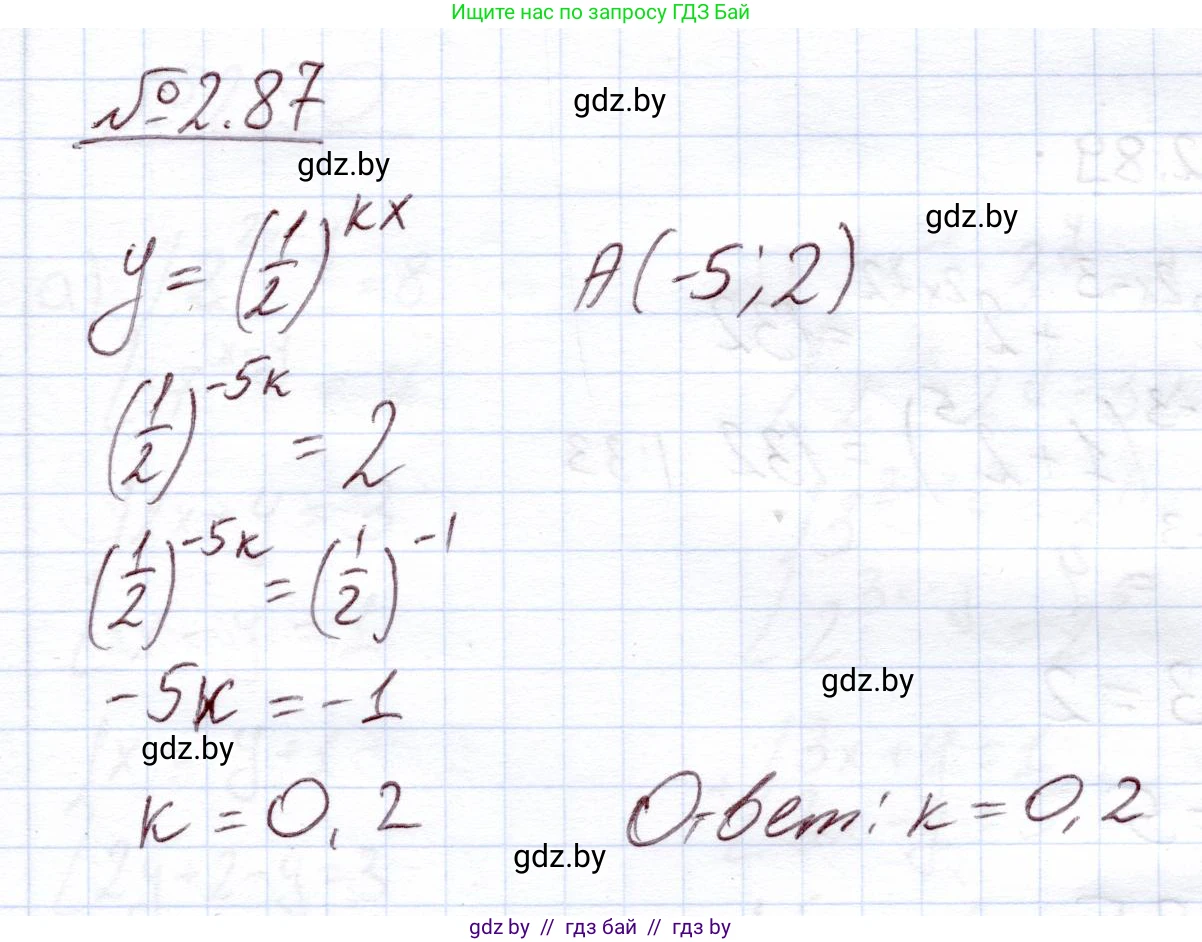 Ищите нас по запросу ГДЗ Бай
№2.87
gdz.by
gdz.by
y = (1/2)^kx A(-5; 2)
gdz.by
(1/2)^-5k = 2
(1/2)^-5k = (1/2)^-1
-5k = -1
gdz.by
gdz.by
k = 0,2 Ответ: k = 0,2
gdz.by
gdz by // гдз бай // гдз by